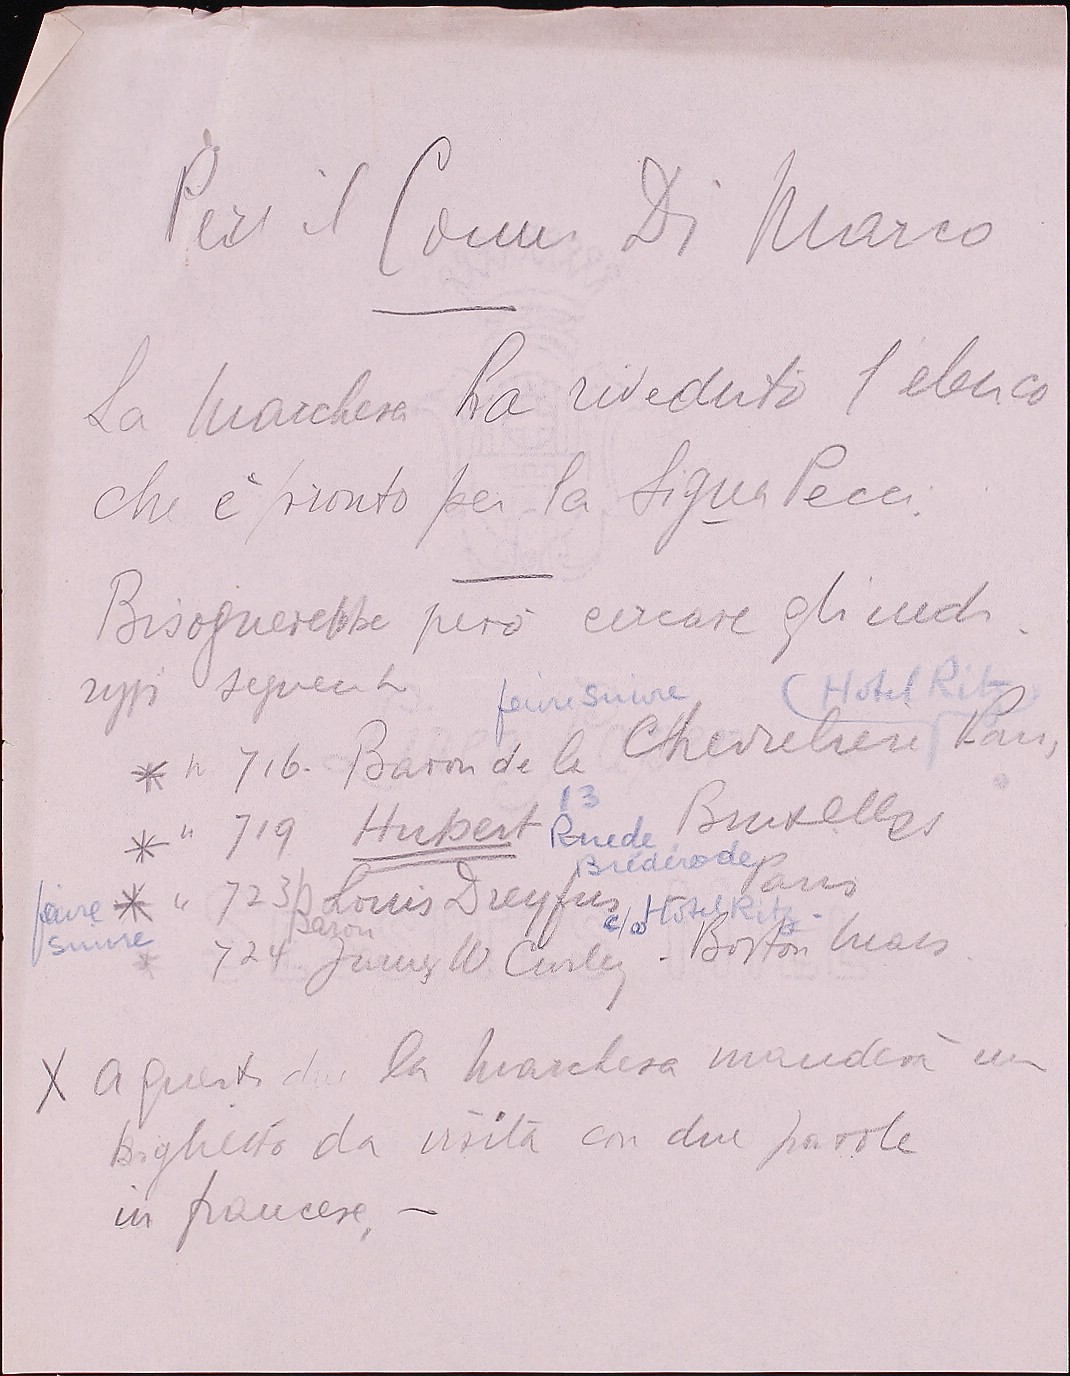 Per il Comm Di Marco
La Marchesa ha riveduto l'elenco
che è pronto per la Sig.na Pecci.
Bisognerebbe però cercare gli indi-
rizzi seguenti
faire suivre (Hotel Ritz)
* " 716. Baron de la Chevrelière Paris,
13
* " 719 Hubert Rue de Bruxelles
Brédérode
faire suivre * " 723 Louis Dreyfus Paris
Baron c/o Hotel Ritz.
* 724 James W. Curley - Boston Mass.
X A questi due la Marchesa manderà un
biglietto da visita con due parole
in francese. -